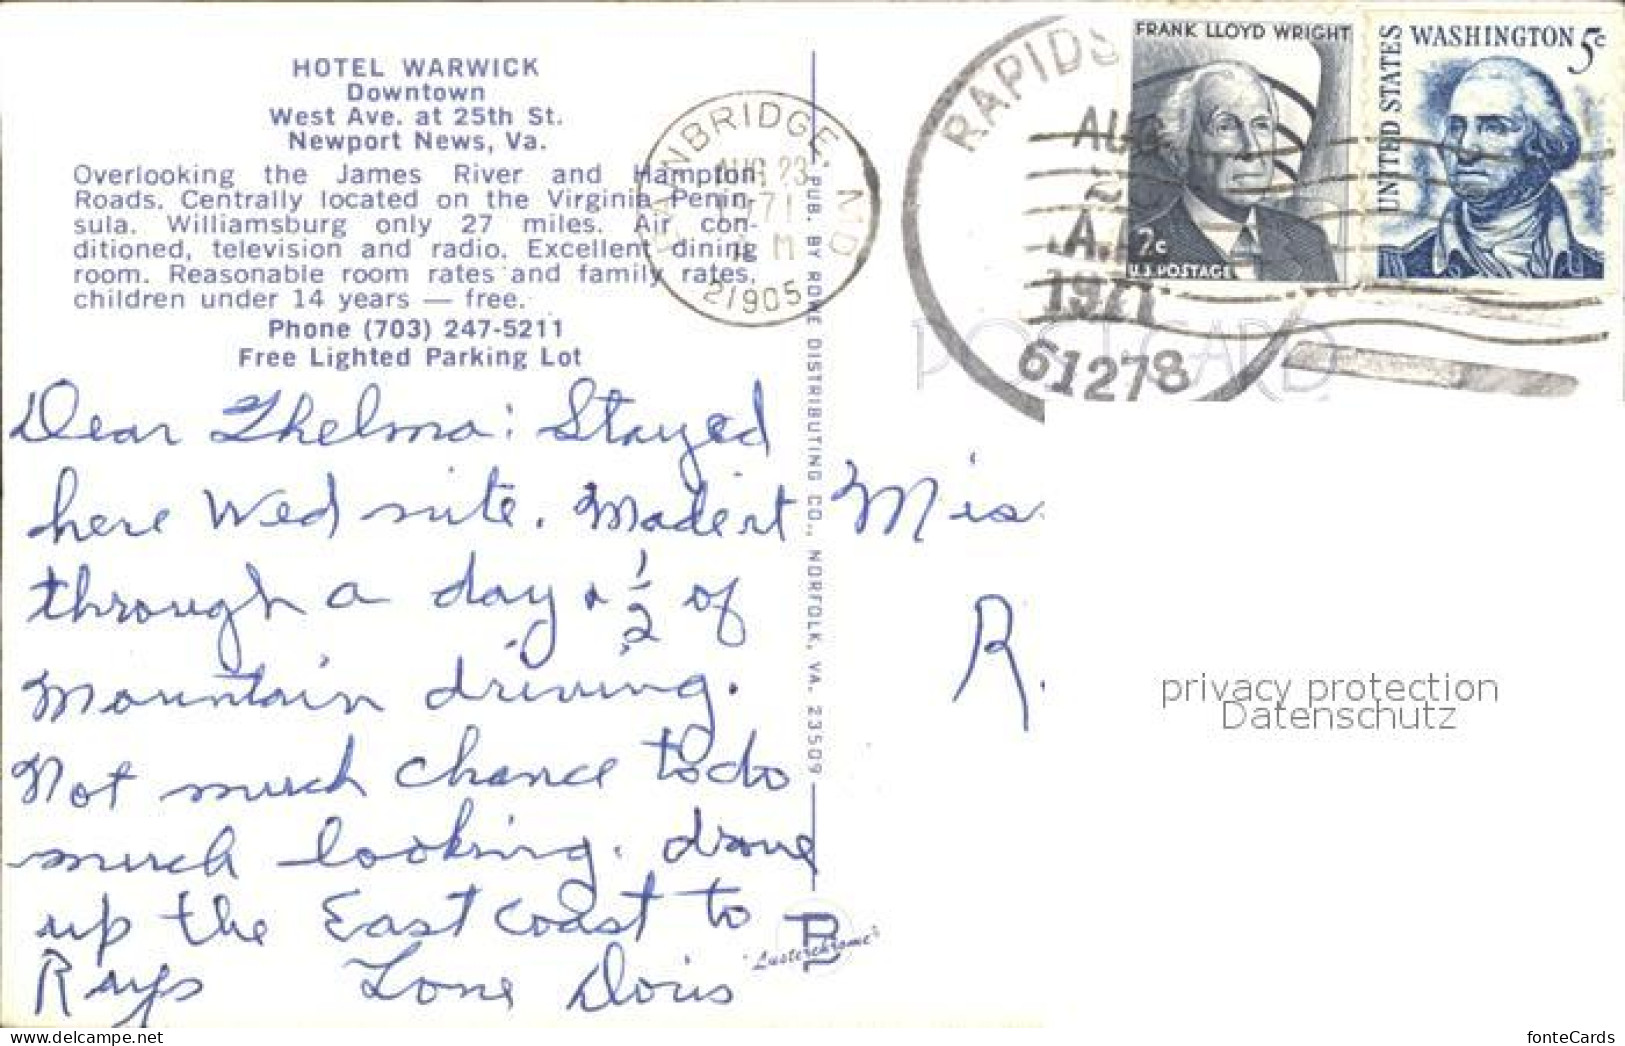 HOTEL WARWICK
Downtown
West Ave. at 25th St.
Newport News, Va.
Overlooking the James River and Hampton
Roads. Centrally located on the Virginia Penin-
sula. Williamsburg only 27 miles. Air con-
ditioned, television and radio. Excellent dining
room. Reasonable room rates and family rates,
children under 14 years — free.
Phone (703) 247-5211
Free Lighted Parking Lot
Dear Thelma: Stayed
here Wed nite. Made it
through a day & 1/2 of
Mountain driving.
Not much chance to do
much looking. drove
up the East Coast to
Rays Love Doris
PUB. BY ROWE DISTRIBUTING CO., NORFOLK, VA. 23509
"Lusterchrome"
NBRIDGE, MD
AUG 23
1971
M
21905
RAPIDS
AUG
2
A.
1971
61278
FRANK LLOYD WRIGHT
2c
U.S. POSTAGE
UNITED STATES
WASHINGTON 5c
POST CARD
Mis
R.
privacy protection
Datenschutz
delcampe.net
fonteCards